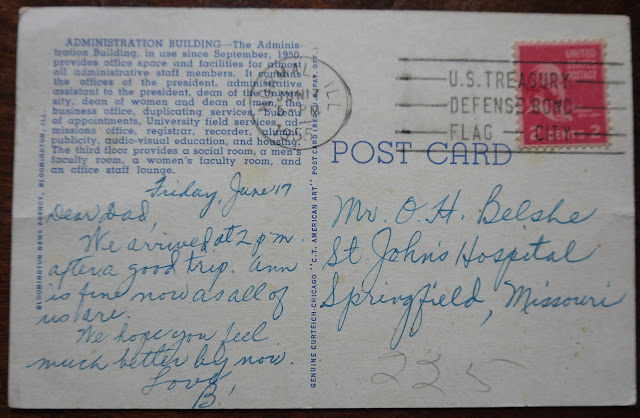 ADMINISTRATION BUILDING—The Adminis-
tration Building, in use since September, 1950,
provides office space and facilities for almost
all administrative staff members. It contains
the offices of the president, administrative
assistant to the president, dean of the Univer-
sity, dean of women and dean of men, the
business office, duplicating services, bureau
of appointments, University field services, ad-
missions office, registrar, recorder, alumni,
publicity, audio-visual education, and housing.
The third floor provides a social room, a men's
faculty room, a women's faculty room, and
an office staff lounge.
BLOOMINGTON NEWS AGENCY, BLOOMINGTON, ILL.
Friday, June 17
Dear Dad,
We arrived at 2 p.m.
after a good trip. Ann
is fine now as all of
us are.
We hope you feel
much better by now.
Love
B.
GENUINE CURTEICH-CHICAGO "C.T. AMERICAN ART" POST CARD (REG. U.S. PAT. OFF.)
NORMAL, ILL.
JUN 17
PM
1955
U.S. TREASURY
DEFENSE BOND
FLAG CITY
UNITED
POSTAGE
2 2
POST CARD
Mr. O. H. Belshe
St. John's Hospital
Springfield, Missouri
225